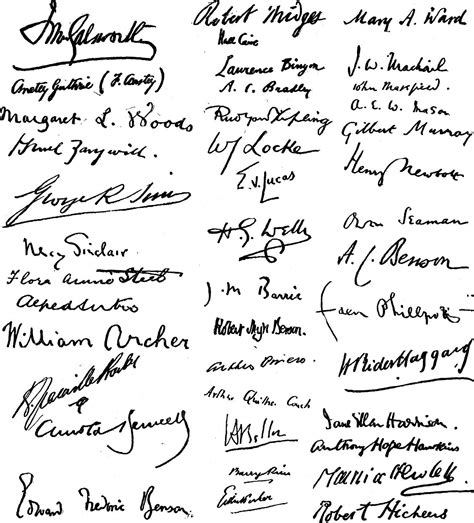 Margaret L. Woods
Israel Zangwill
George R Sims
May Sinclair
Flora Annie Steel
Alfred Sutro
William Archer
H. Granville Barker
Arnold Bennett
Edward Frederic Benson
Robert Bridges
Hall Caine
Laurence Binyon
A. C. Bradley
Rudyard Kipling
W J Locke
E. V. Lucas
H. G. Wells
J. M. Barrie
Robert Hugh Benson.
Arthur Pinero.
Arthur Quiller Couch
Barry Pain
Mary A. Ward
J. W. Mackail
John Masefield.
A. E. W. Mason
Gilbert Murray
Henry Newbolt
Owen Seaman
A. C. Benson
Eden Phillpotts
H Rider Haggard
Jane Ellen Harrison.
Anthony Hope Hawkins
Maurice Hewlett
Robert Hichens